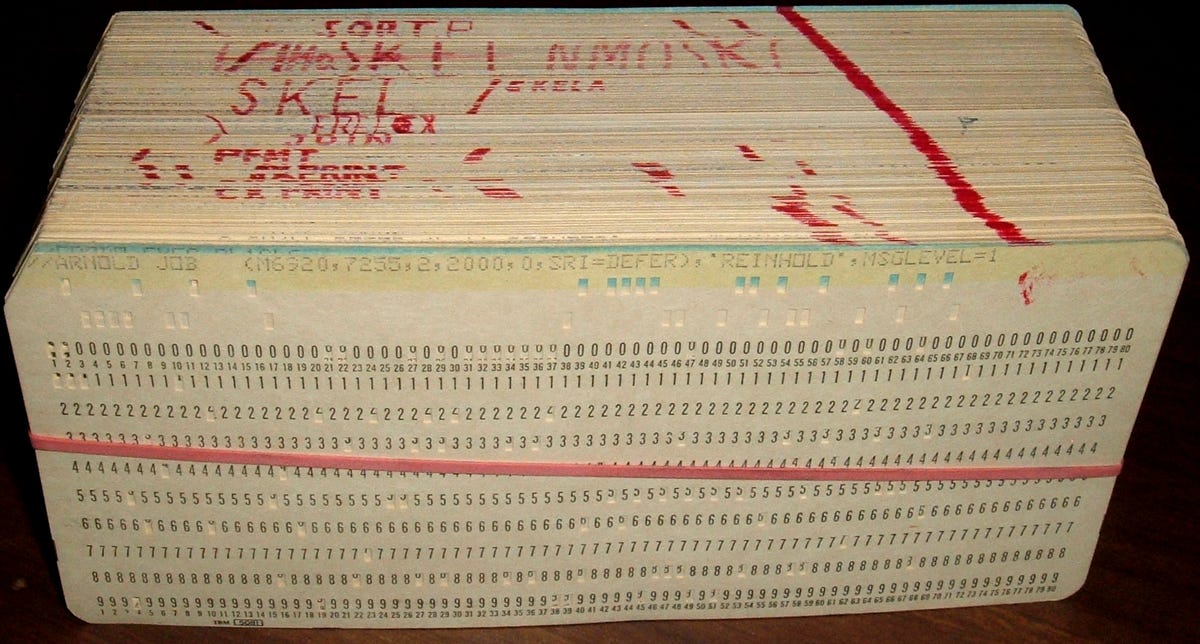 SORTP
SKEL
SKEL
EKELA
PFMT
EXPRINT
EX PRINT
//ARNOLD JOB (M6920,7255,2,2000,0,SRI=DEFER),'REINHOLD',MSGLEVEL=1
00000000000000000000000000000000000000000000000000000000000000000000000000000000
1 2 3 4 5 6 7 8 9 10 11 12 13 14 15 16 17 18 19 20 21 22 23 24 25 26 27 28 29 30 31 32 33 34 35 36 37 38 39 40 41 42 43 44 45 46 47 48 49 50 51 52 53 54 55 56 57 58 59 60 61 62 63 64 65 66 67 68 69 70 71 72 73 74 75 76 77 78 79 80
11111111111111111111111111111111111111111111111111111111111111111111111111111
22222222222222222222222222222222222222222222222222222222222222222222222222222222
33333333333333333333333333333333333333333333333333333333333333333333333333333333
44444444444444444444444444444444444444444444444444444444444444444444444444444444
55555555555555555555555555555555555555555555555555555555555555555555555555555555
66666666666666666666666666666666666666666666666666666666666666666666666666666666
77777777777777777777777777777777777777777777777777777777777777777777777777777777
88888888888888888888888888888888888888888888888888888888888888888888888888888888
99999999999999999999999999999999999999999999999999999999999999999999999999999999
1 2 3 4 5 6 7 8 9 10 11 12 13 14 15 16 17 18 19 20 21 22 23 24 25 26 27 28 29 30 31 32 33 34 35 36 37 38 39 40 41 42 43 44 45 46 47 48 49 50 51 52 53 54 55 56 57 58 59 60 61 62 63 64 65 66 67 68 69 70 71 72 73 74 75 76 77 78 79 80
IBM 5081